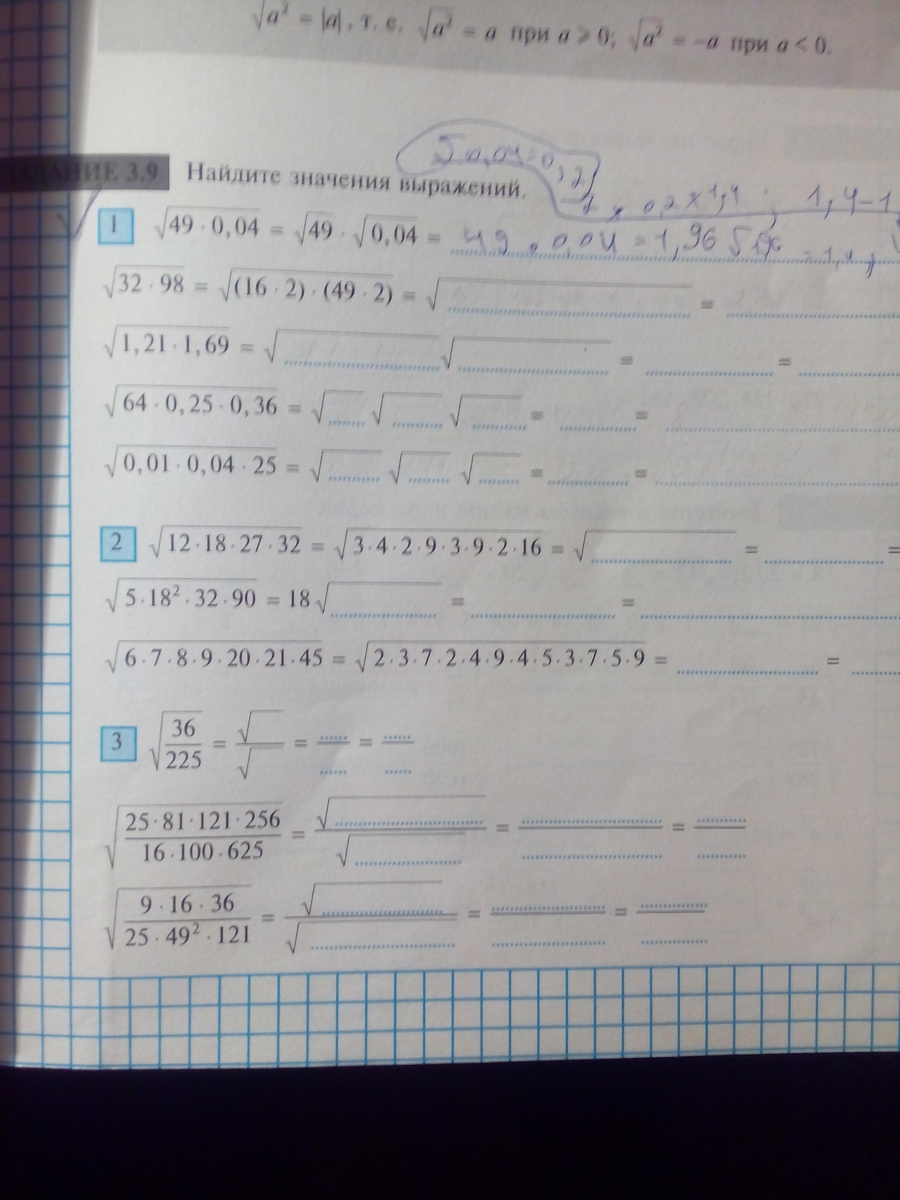 √a² = |a|, т. е. √a² = a при a ⩾ 0; √a² = −a при a < 0.
√0,04=0,2
ЗАДАНИЕ 3.9 Найдите значения выражений.
7 × 0,2 × 1,4 ; 1,4−1,
1 √49 · 0,04 = √49 · √0,04 = 49 · 0,04 = 1,96 = 1,4
√32 · 98 = √(16 · 2) · (49 · 2) = √ =
√1,21 · 1,69 = √ √ = =
√64 · 0,25 · 0,36 = √ √ √ = =
√0,01 · 0,04 · 25 = √ √ √ = =
2 √12 · 18 · 27 · 32 = √3 · 4 · 2 · 9 · 3 · 9 · 2 · 16 = √ = =
√5 · 18² · 32 · 90 = 18√ = =
√6 · 7 · 8 · 9 · 20 · 21 · 45 = √2 · 3 · 7 · 2 · 4 · 9 · 4 · 5 · 3 · 7 · 5 · 9 = =
3 √36/225 = √/√ = =
√25 · 81 · 121 · 256/16 · 100 · 625 = √/√ = =
√9 · 16 · 36/25 · 49² · 121 = √/√ = =